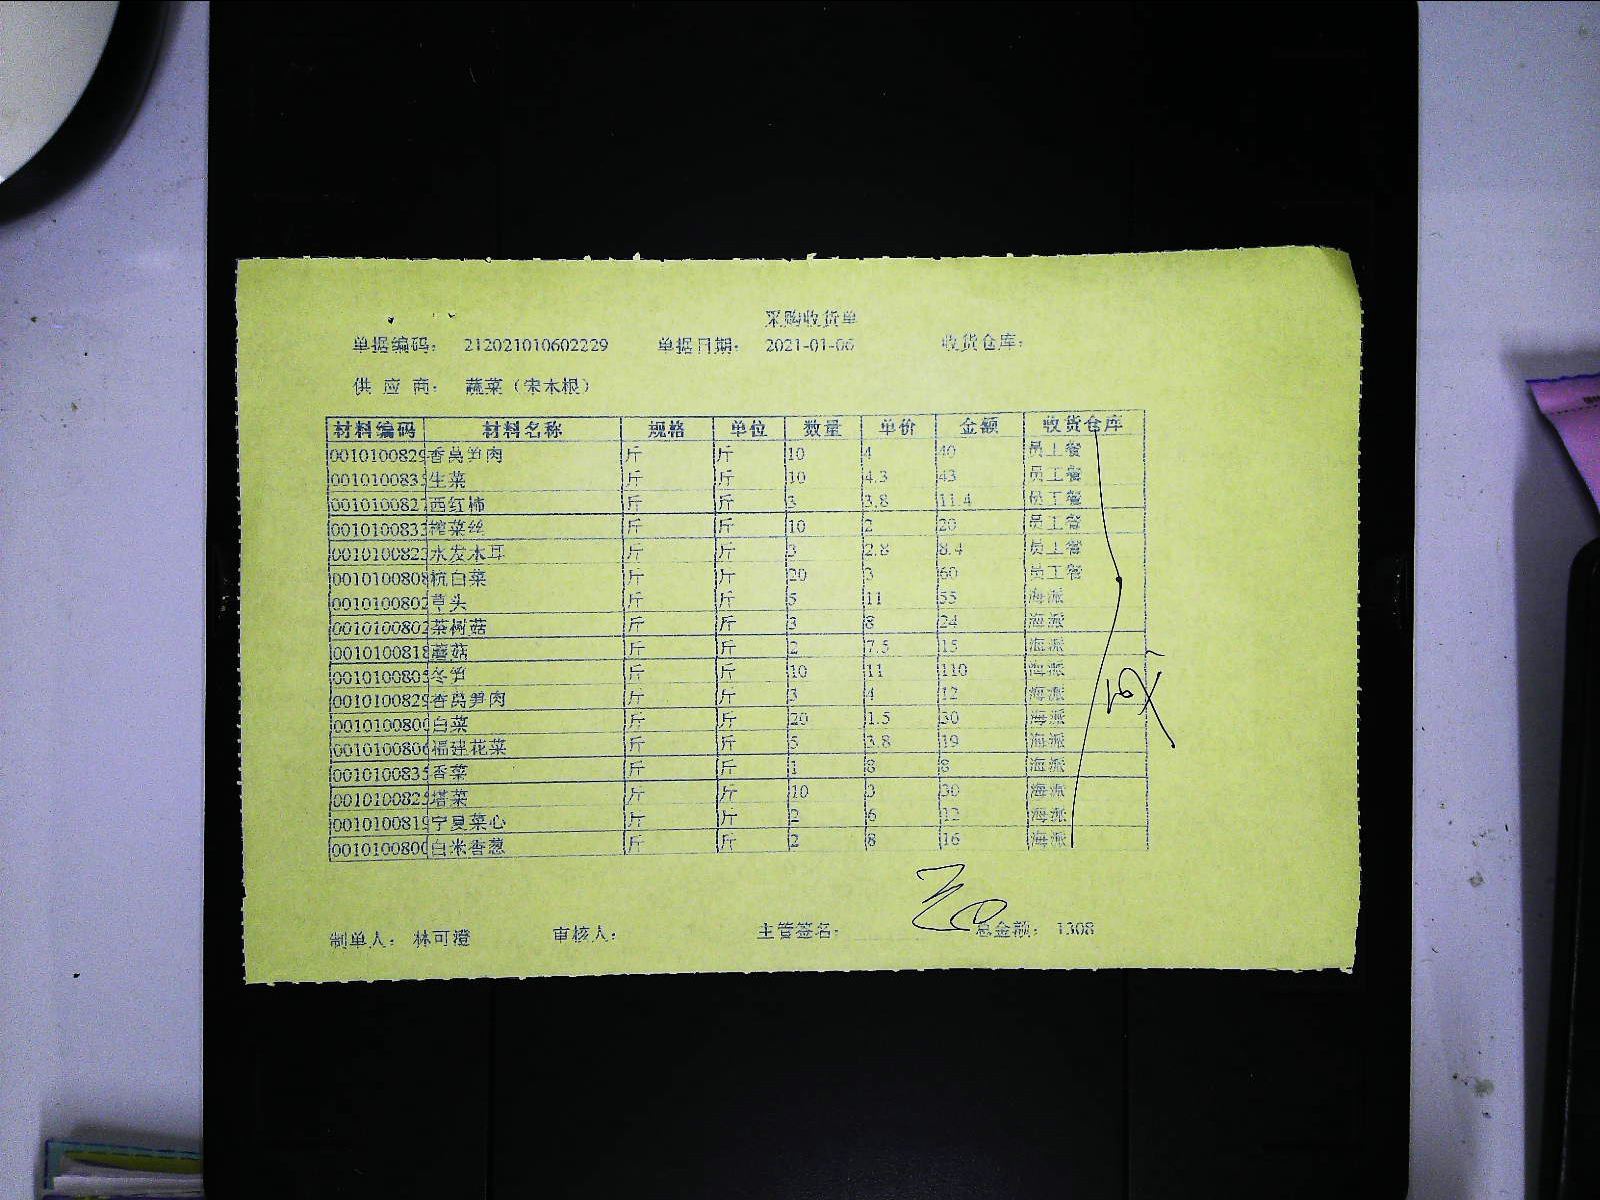 采购收货单
单据编码： 212021010602229 单据日期： 2021-01-06 收货仓库：
供 应 商： 蔬菜（宋木根）
材料编码 材料名称 规格 单位 数量 单价 金额 收货仓库
0010100829 香莴笋肉 斤 斤 10 4 40 员工餐
001010083 生菜 斤 斤 10 4.3 43 员工餐
0010100827 西红柿 斤 斤 3 3.8 11.4 员工餐
0010100833 榨菜丝 斤 斤 10 2 20 员工餐
001010082 水发木耳 斤 斤 3 2.8 8.4 员工餐
0010100808 杭白菜 斤 斤 20 3 60 员工餐
0010100802 草头 斤 斤 5 11 55 海派
0010100802 茶树菇 斤 斤 3 8 24 海派
0010100818 蘑菇 斤 斤 2 7.5 15 海派
0010100805 冬笋 斤 斤 10 11 110 海派
0010100829 香莴笋肉 斤 斤 3 4 12 海派
0010100800 白菜 斤 斤 20 1.5 30 海派
0010100806 福建花菜 斤 斤 5 3.8 19 海派
0010100835 香菜 斤 斤 1 8 8 海派
0010100825 塔菜 斤 斤 10 3 30 海派
0010100819 宁夏菜心 斤 斤 2 6 12 海派
0010100800 白米香葱 斤 斤 2 8 16 海派
制单人： 林可澄 审核人： 主管签名： 总金额： 1308